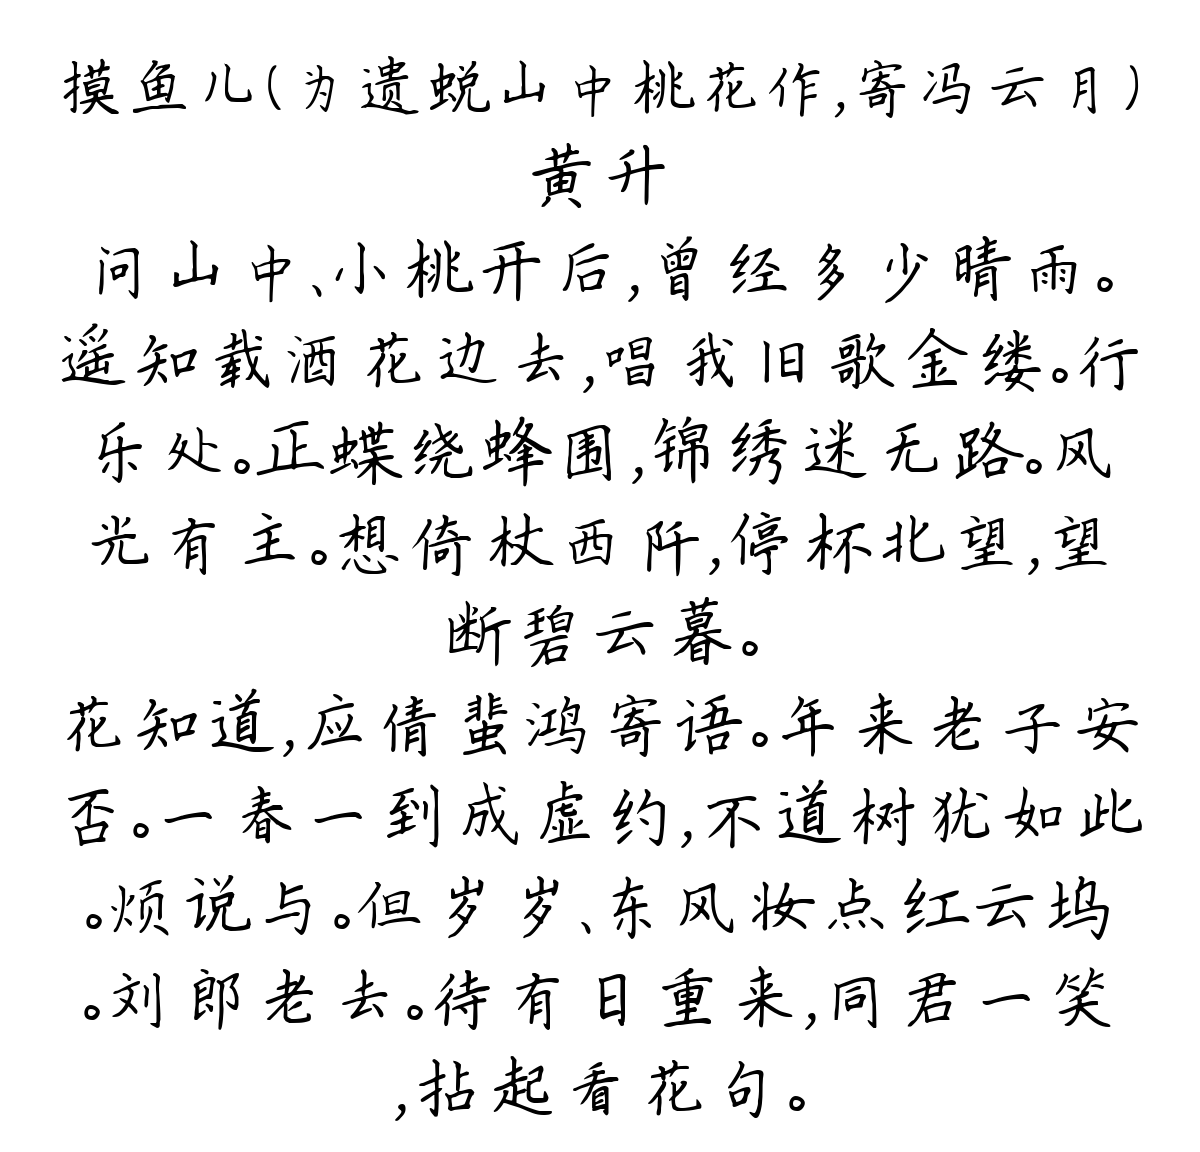 摸鱼儿(为遗蜕山中桃花作,寄冯云月)
黄升
问山中、小桃开后,曾经多少晴雨。
遥知载酒花边去,唱我旧歌金缕。行
乐处。正蝶绕蜂围,锦绣迷无路。风
光有主。想倚杖西阡,停杯北望,望
断碧云暮。
花知道,应倩蜚鸿寄语。年来老子安
否。一春一到成虚约,不道树犹如此
。烦说与。但岁岁、东风妆点红云坞
。刘郎老去。待有日重来,同君一笑
,拈起看花句。